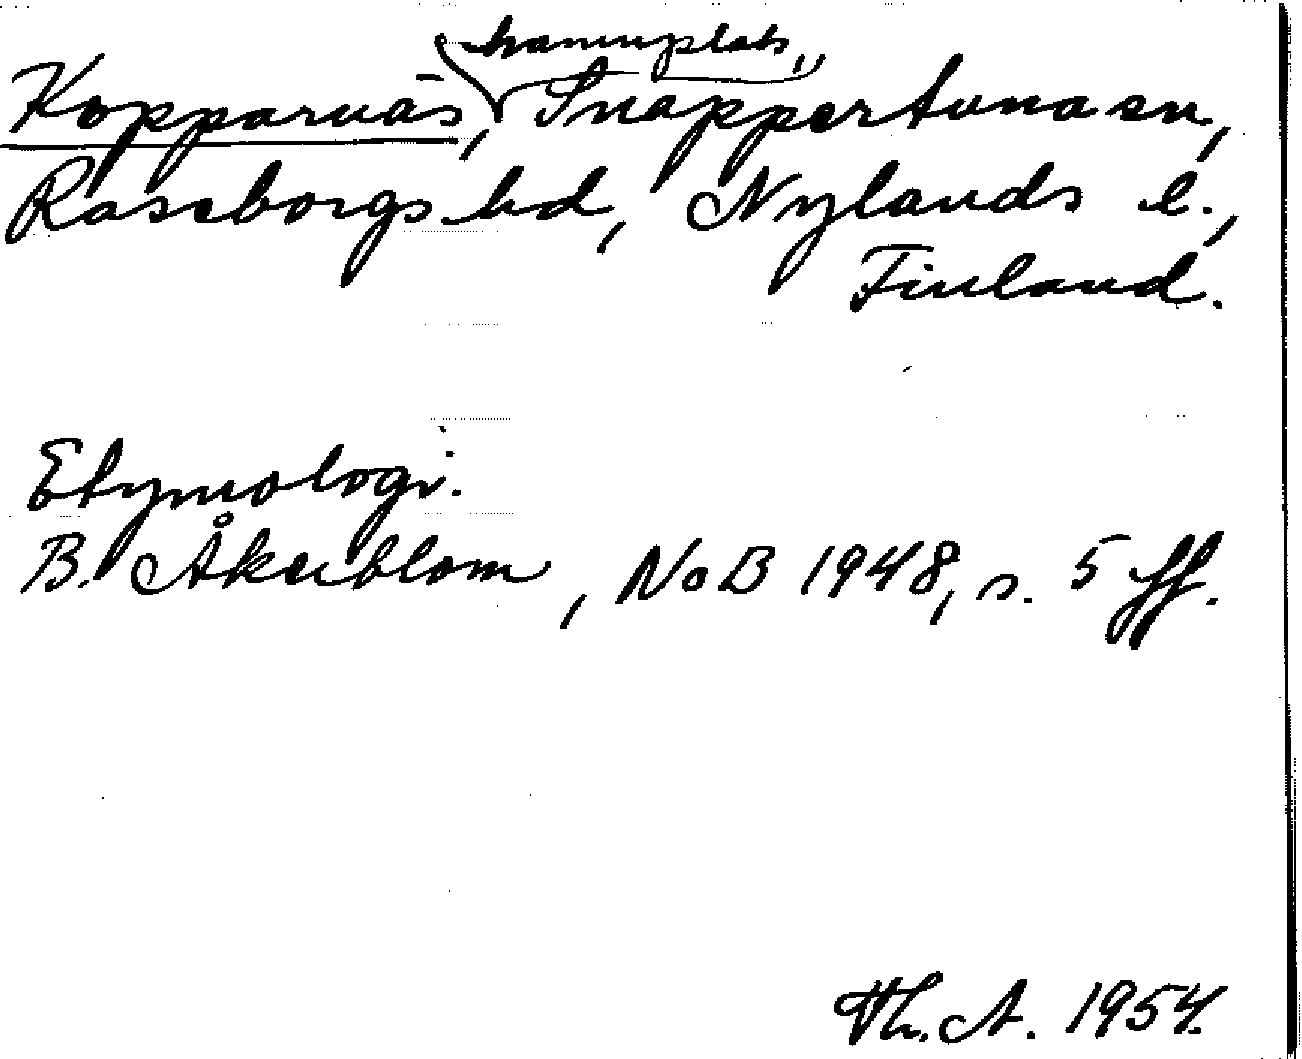 hamnplats,,
Kopparnäs, Snappertuna sn,
Raseborgs hd, Nylands l.,
Finland.
Etymologi.
B. Åkerblom, NoB 1948, s. 5 ff.
Th. A. 1954.